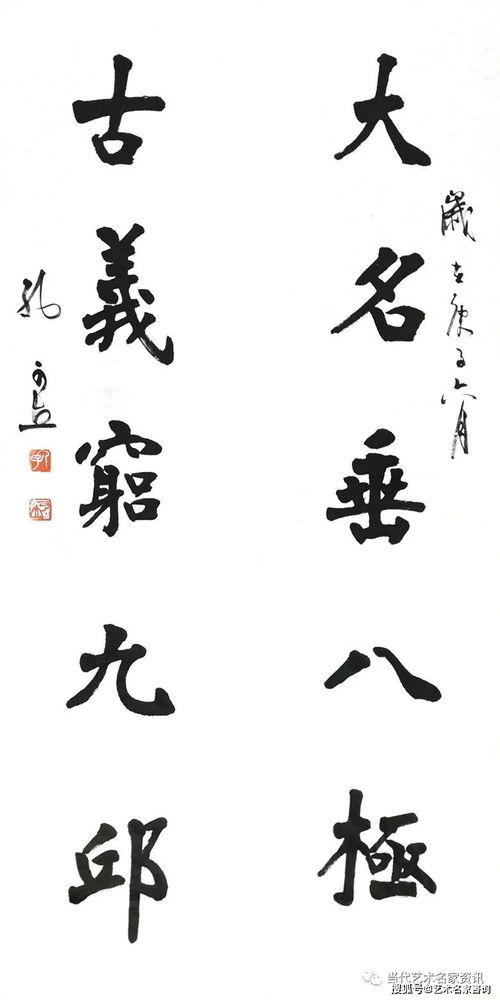 歲在庚子六月
大名垂八極
古義竆九邱
孔
当代艺术名家资讯
搜狐号@艺术名家咨询